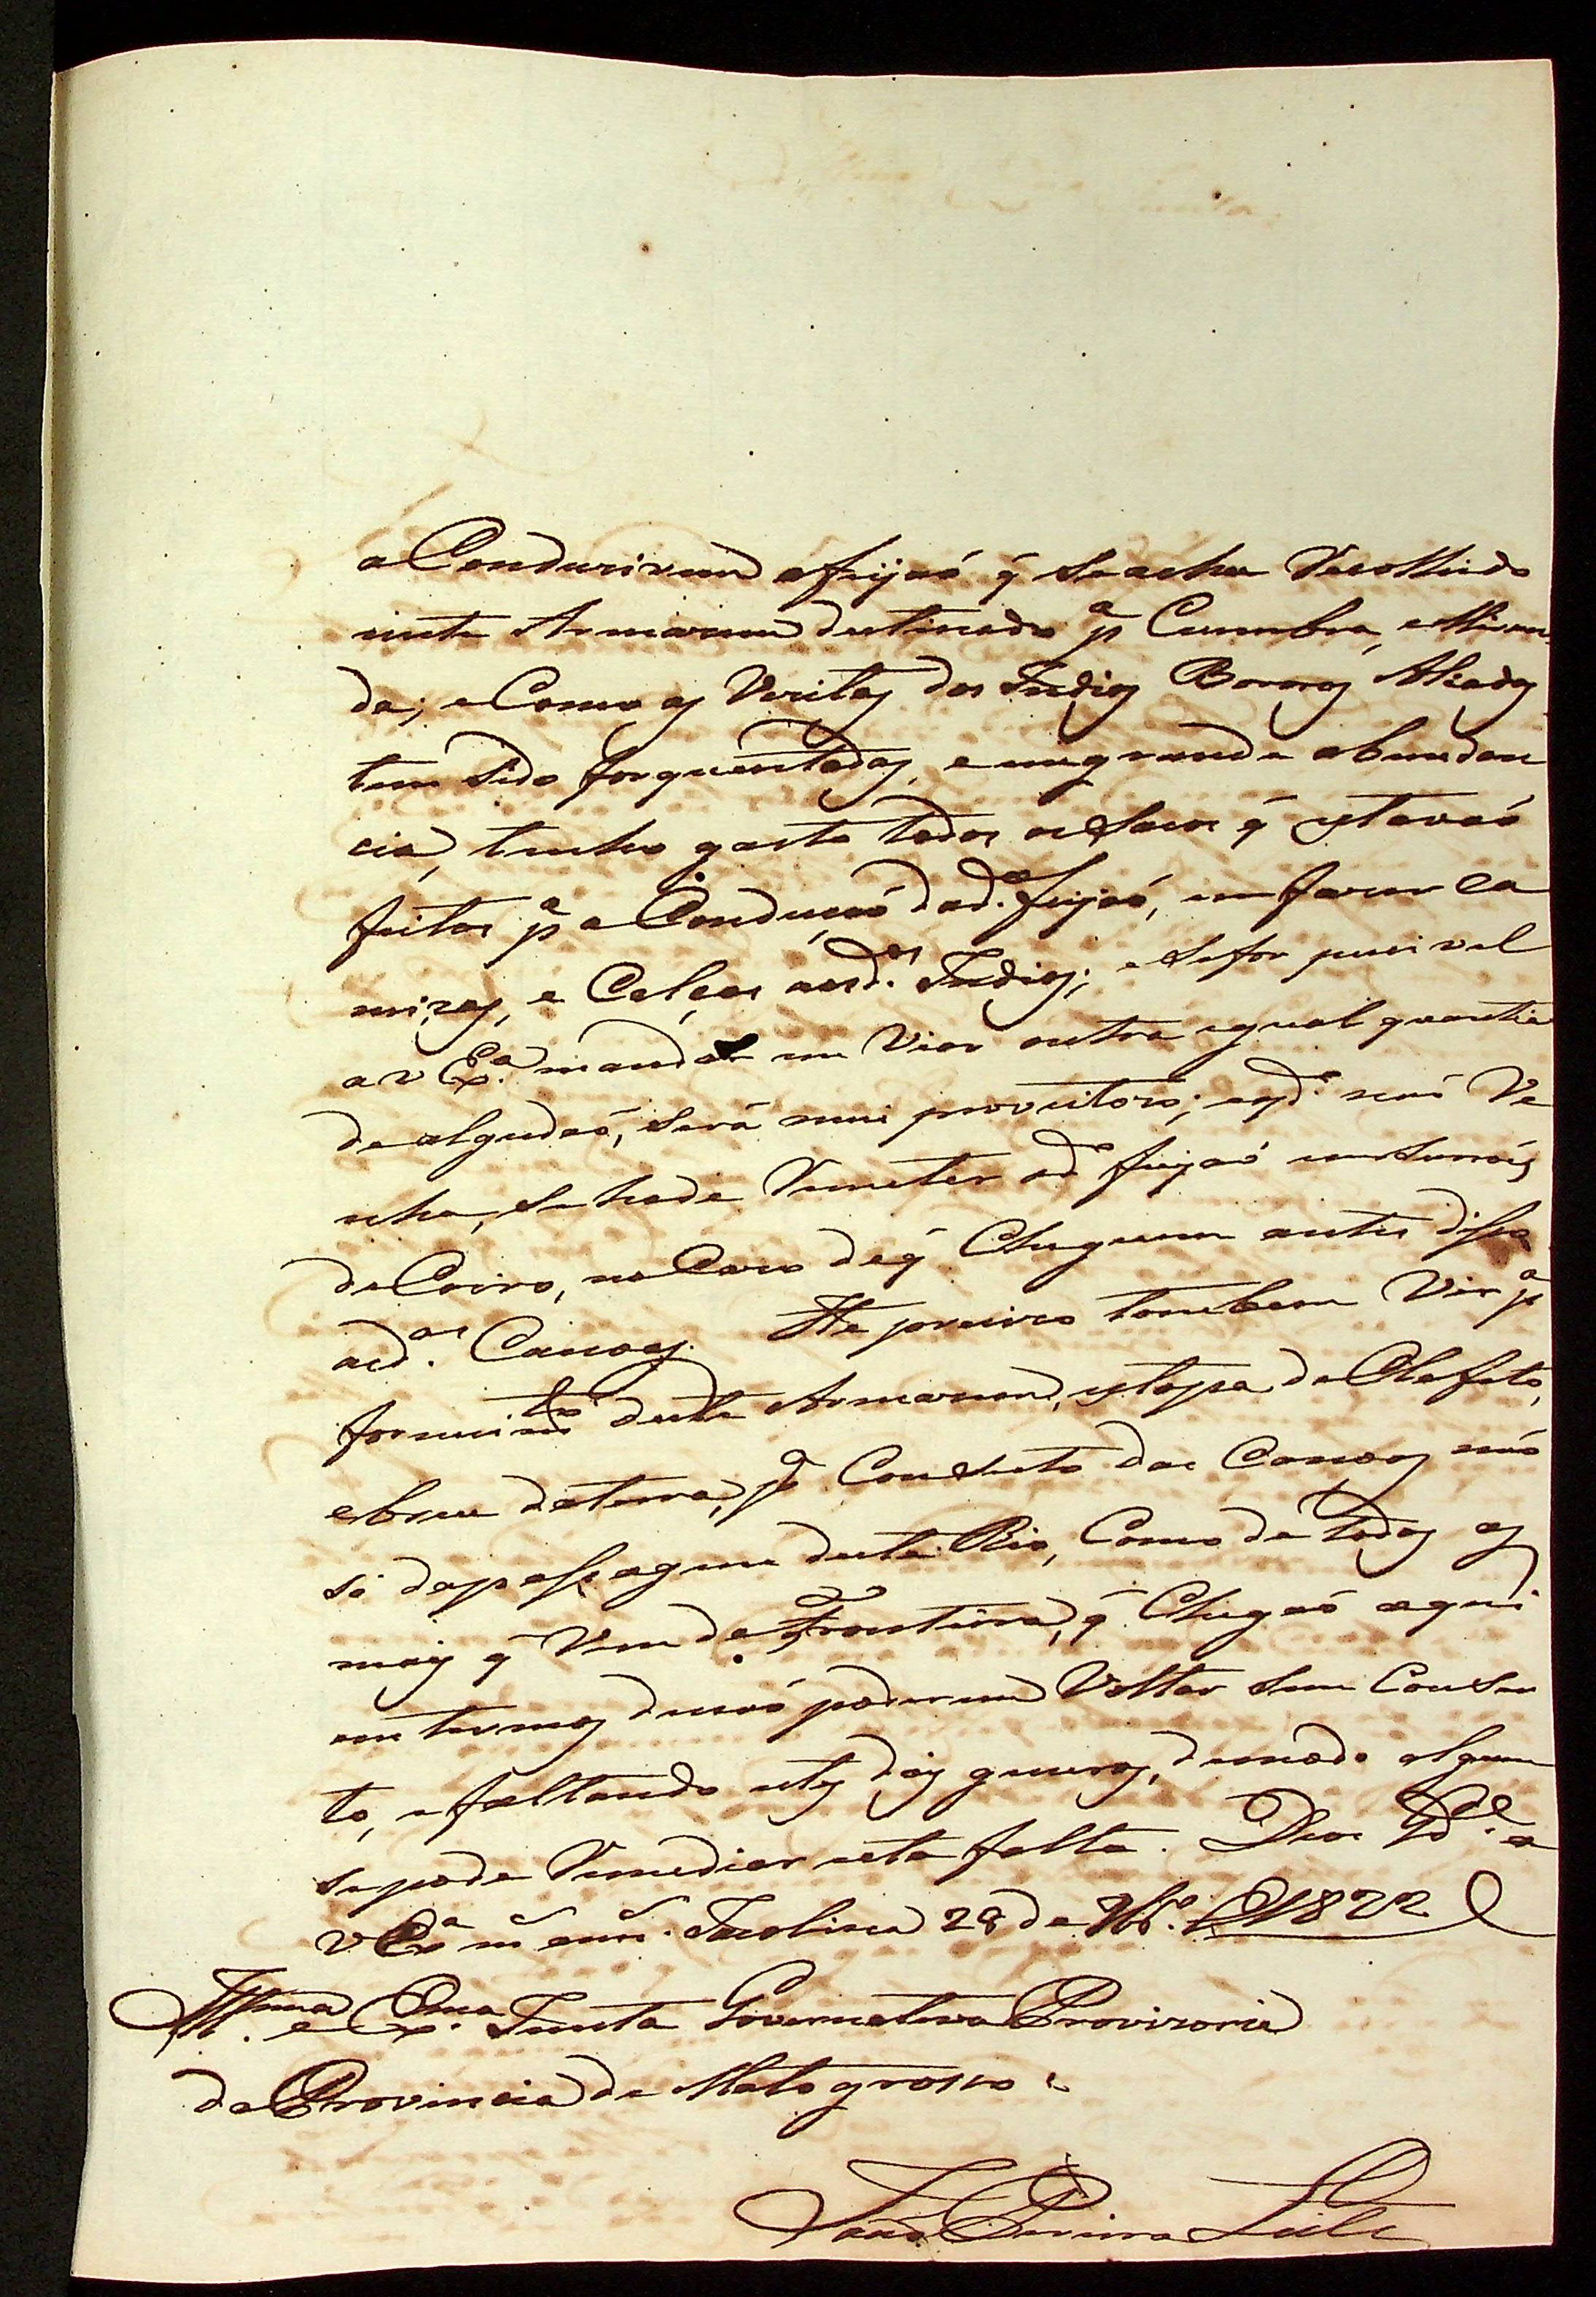 a Conduzirem o feijaõ q̃ Se acha Recolhido
neste Armazem destinado pª Cuimbra, e Miran
da; e Como as Vezitas dos Indios Bororos Aliados
tem Sido forquentadas, e em grande abundan
cia, tenho gasto todos os Sacos q̃ estavaõ
feitos pª a Conduçaõ do dº feijaõ, em fazer Ca
mizas, e Calças aos dos Indios; e Se for pucivel
a V Exª mandar me Vier outra igual quantia
de algudaõ, Será mui proveitozo; e qdº naõ Ve
nha, Se hade Remeter o dº feijaõ em Surroés
de Coiro, no Cazo de q̃ Cheguem antes disso
as dªs Canoas. He precizo tambem Vir pª
fornecimtº deste Armazem, estopa de Calafeto,
e breu da terra, pª Conserto das Canoas naõ
só da passagem deste Rio, Como de todas as
mais q̃ Vem da Fronteira, q̃ Chegaõ aqui
em termos de naõ poderem Voltar Sem Conser
to, e faltando estes dois generos, de modo algum
se pode Remediar esta falta. Deos Gde a
V Exª ms anns. Jacobina 28 de 1822
Illma e Exma Junta Governativa Provizoria
da Provincia de Mato grosso.
Joaõ Pereira Leite